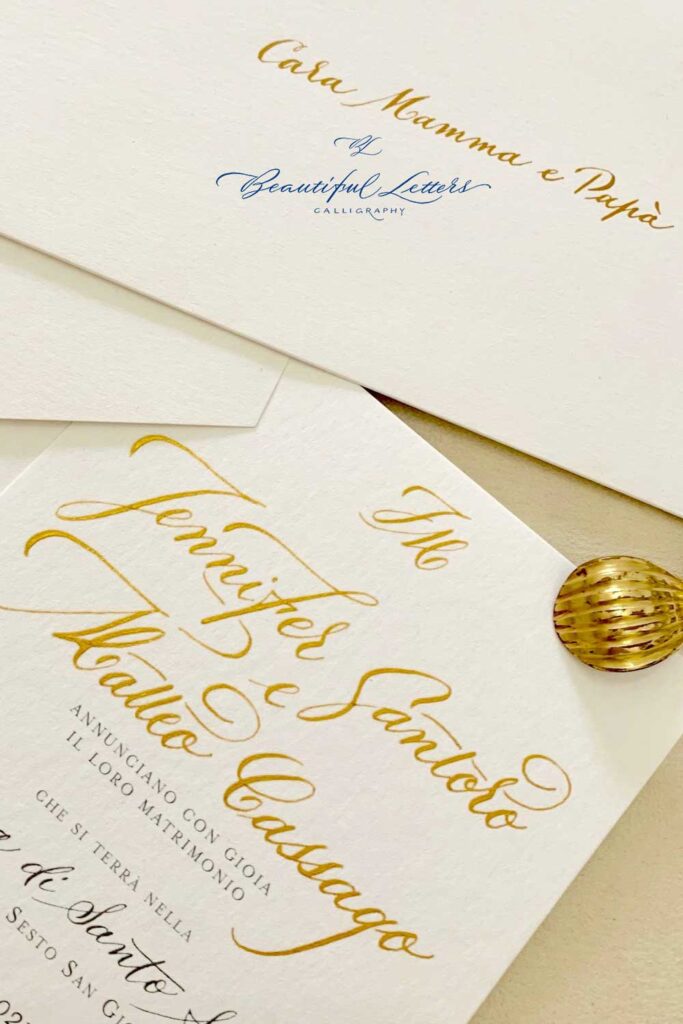 Cara Mamma e Papà
BL
Beautiful Letters
CALLIGRAPHY
JM
Jennifer Santoro
e
Matteo Cassago
ANNUNCIANO CON GIOIA
IL LORO MATRIMONIO
CHE SI TERRÀ NELLA
di Santo
SESTO SAN